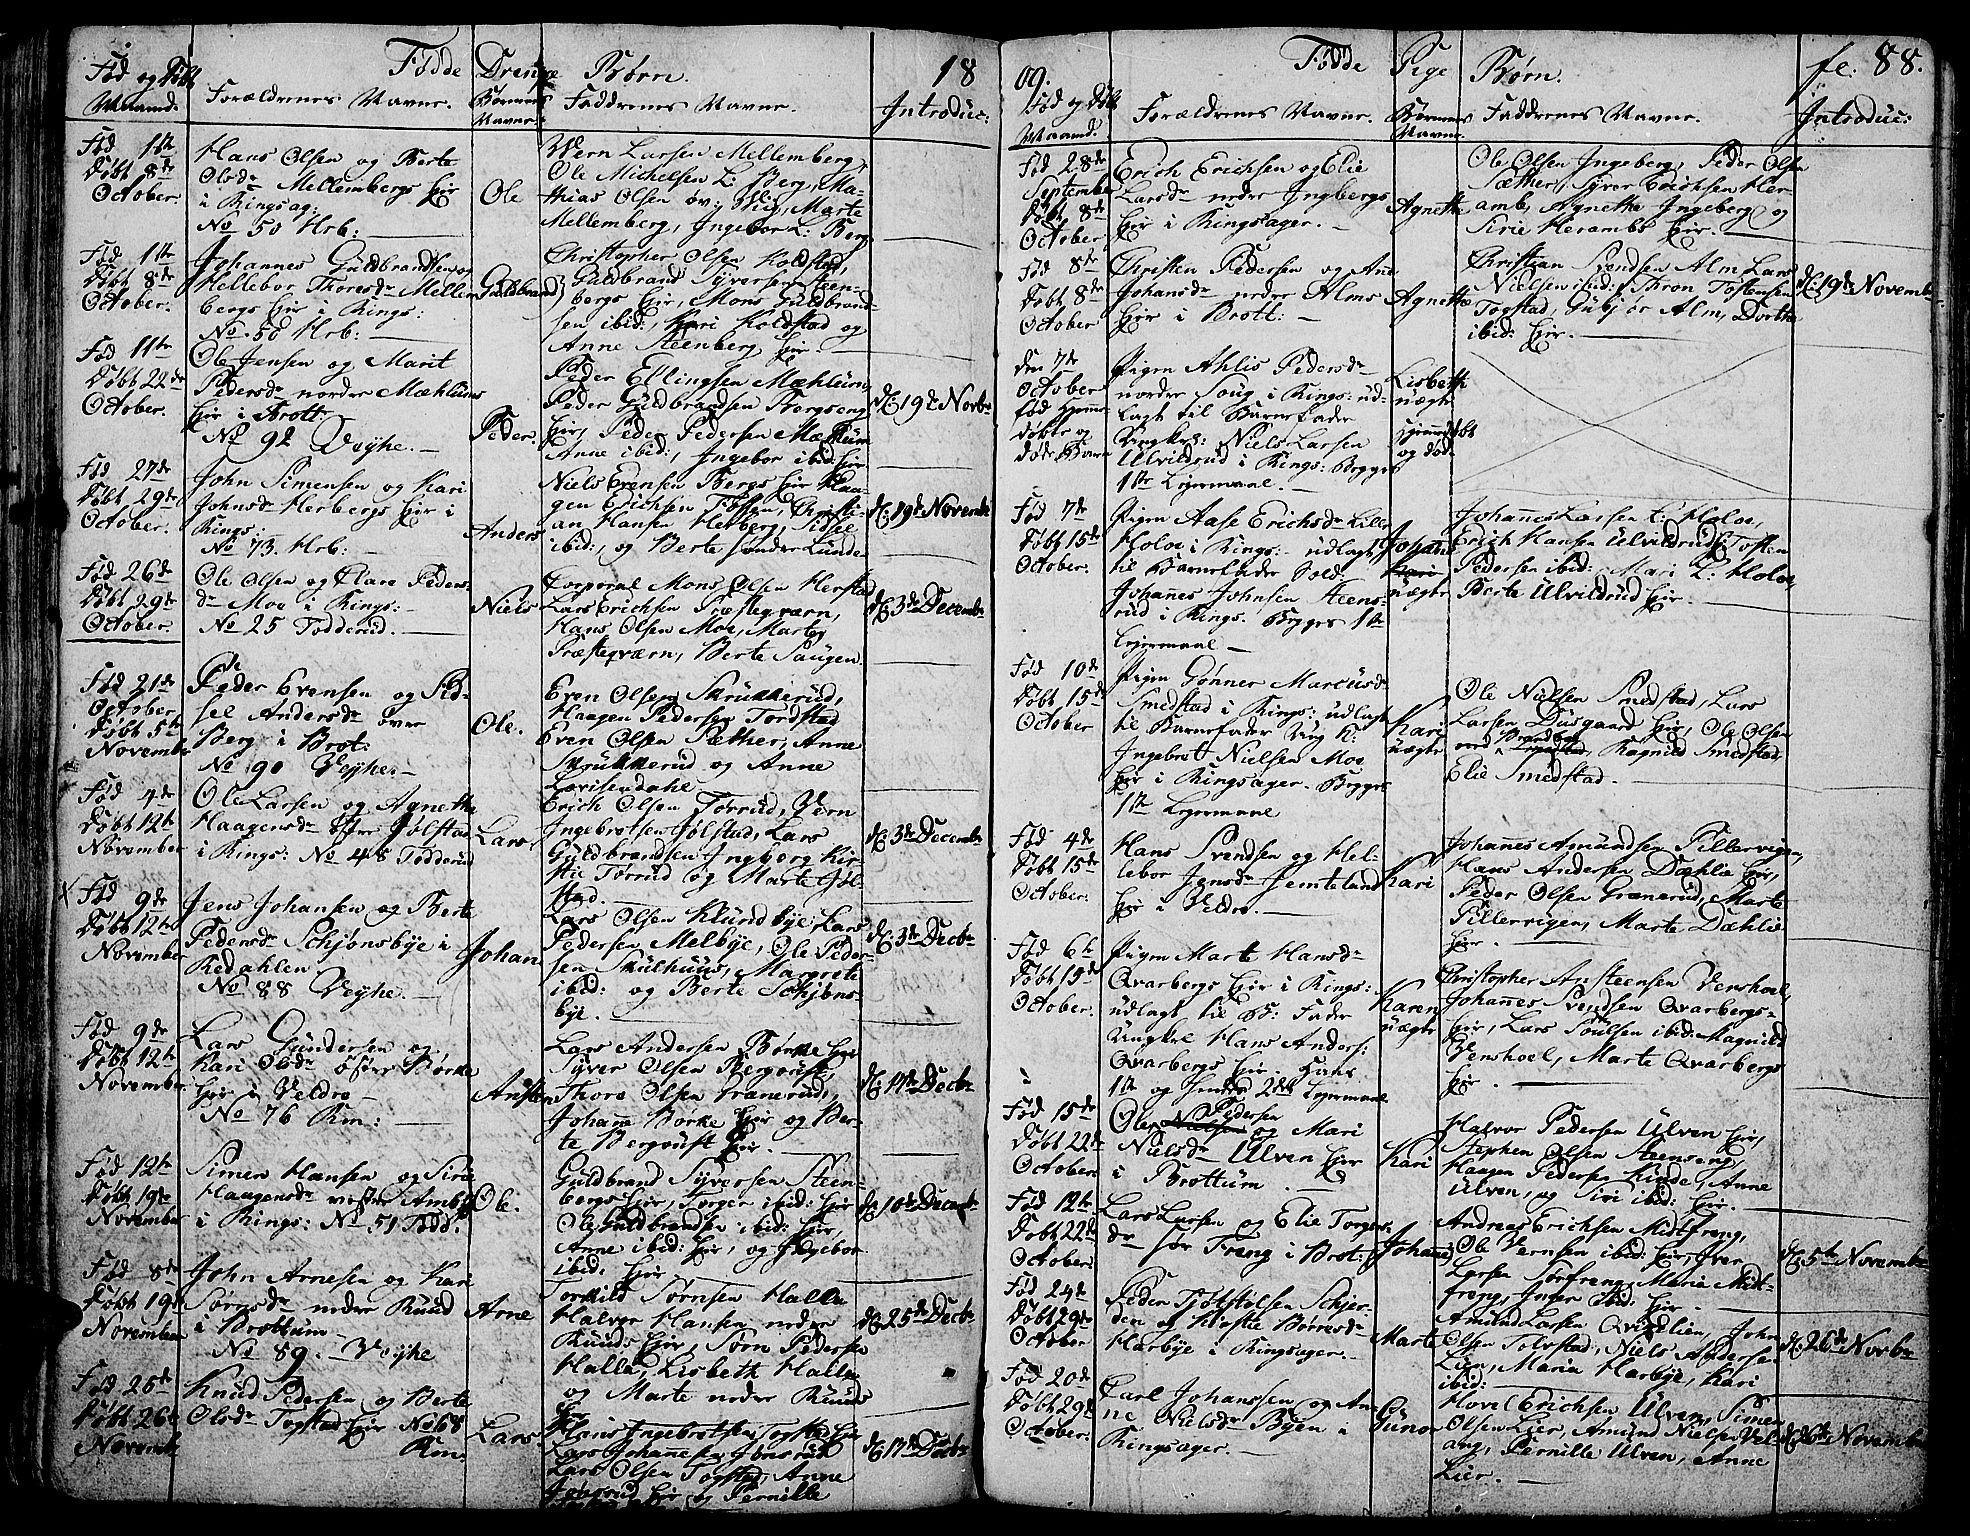 Fødde Drenge Børn. 18
Fød og Døbt
Maaned.
Forældrenes Navne.
Børnenes
Navne.
Faddrenes Navne.
Introduc:
Fød 1te
Døbt 8de
October.
Hans Olsen og Berte
Olsdr Mellembergs Ejr
i Ringsag:
No 50 Hrb:
Ole
Wern Larsen Mellemberg,
Ole Michelsen L: Berg, Ma-
thias Olsen øv: Wig, Marte
Mellemberg, Ingebor L: Berg
Fød 1te
Døbt 8de
October.
Johannes Guldbrandsen og
Hellebor Thoresdr Mellem
bergs Ejr i Rings:
No 50 Hrb:
Guldbrand
Christopher Olsen Koldstad,
Guldbrand Syversen Steen-
bergs Ejr, Mons Guldbrand-
sen ibid:, Kari Koldstad og
Anne Steenberg Ejr.
Fød 11te
Døbt 22de
October.
Ole Jensen og Marit
Pedersdr nordre Mæhlums
Ejr i Brott:
No 92 Vejhe.
Peder.
Peder Ellingsen Mæhlum,
Peder Guldbrandsen Borgseng
Ejr, Peder Pedersen Mæhlum
Anne ibid:, Ingebor ibid: Ejr
d: 19de Novbr
Fød 27de
Døbt 29de
October.
John Simensen og Kari
Johnsdr Herbergs Ejr i
Rings:
No 73. Hrb:
Anders
Niels Evensen Bergs Ejr Haa-
gen Erichsen Fossen, Christi-
an Hansen Herberg, Sidsel
ibid:, og Berte søndre Lunde
d: 19de Novembr
Fød 26de
Døbt 29de
October.
Ole Olsen og Clare Peders-
dr Moe i Rings:
No 25 Fodderud.
Niels
Corporal Mons Olsen Herstad
Lars Erichsen Præsteqværn,
Hans Olsen Moe, Marte
Præsteqværn, Berte Saugen
d: 3de Decembr
Fød 21de
October
Døbt 5te
November
Peder Evensen og Sid-
sel Andersdr over
Berg i Brot:
No 90 Vejhe.
Ole.
Even Olsen Skrukkerud,
Haagen Pedersen Tordstad
Even Olsen Sæther, Anne
Skrukkerud og Anne
Lovisendahl
Fød 4de
Døbt 12te
November
Ole Larsen og Agnethe
Haagensdr østre Jølstad
i Rings: No 48 Fodderud
Lars
Erich Olsen Torrud, Vern
Ingebrotsen Jølstad, Lars
Guldbrandsen Ingberg Kir-
stie Torrud og Marte Jøl-
stad.
d: 3de Decembr
Fød 9de
Døbt 12te
November
Jens Johansen og Berte
Pedersdr Schjønsbye i
Redahlen
No 88 Vejhe.
Johan
Lars Olsen Klundbye, Lars
Pedersen Melbye, Ole Peder-
sen Skulhuus, Margrete
ibid: og Berte Schjøns-
bye.
d: 3de Decbr
Fød 9de
Døbt 12te
November
Lars Gundersen og
Kari Olsdr østre Børke
Ejr i Veldre
No 76 Rm:
Ansten
Lars Andersen Børke Ejr
Syver Olsen Bergqust,
Thore Olsen Granerud,
Johann Børke Ejr og Ber-
te Bergqust Ejr.
d: 17de Decbr
Fød 12te
Døbt 19de
November
Simen Hansen og Siri
Haagensdr vestre Amb
i Rings: No 51. Fodd:
Ole.
Guldbrand Syversen Steen-
bergs Ejr, Torger ibid: Ejr
Ole Guldbrandsen ibid: Ejr,
Anne ibid: Ejr, og Ingebor
ibid, Ejr
d: 10de Decembr
Fød 8de
Døbt 19de
November
John Arnesen og Kari
Sørnsdr nedre Ruud
i Brottum
No 89. Vejhe
Arne
Torkild Sørnsen Halle
Halvor Hansen nedre
Ruuds Ejr, Sørn Pedersen
Halle, Lisbeth Halle
og Marte nedre Ruuds
d: 25de Decbr
Fød 25de
Døbt 26de
Novembr
Knud Pedersen og Berte
Olsdr Togstad Ejr No 68
Rm.
Lars
Hans Ingebrotsen Togstad Ejr
Lars Johannesen Jønsrud
Lars Olsen Togstad, Anne
Jønsrud Ejr og Pernille
d: 17de Decbr
09. Fødde Pige Børn. fc: 88.
Fød og Døbt
Maaned.
Forældrenes Navne.
Børnenes
Navne.
Faddrenes Navne.
Introduc:
Fød 28de
September
Døbt 8de
October.
Erich Erichsen og Elie
Larsdr nedre Ingbergs
Ejr i Ringsager.
Agnethe
Ole Olsen Ingeberg, Peder Olsen
Sæther, Syver Erichsen Her-
amb, Agnethe Ingeberg og
Sirie Herambs Ejr.
Fød 8de
Døbt 8de
October
Christen Pedersen og Ane
Johansdr nedre Alms
Ejr i Brott:
Agnethe
Christian Svendsen Alm Lars
Nielsen ibid:, Thron Tostensen
Togstad, Gubjør Alm, Dorthe
ibid: Ejr.
d: 19de Novembr
den 7de
October
fød hjemme-
døbte og
døde Barn
Pigen Ahlis Pedersdr
nordre Soug i Rings: ud-
lagt til Barnefader
Ungkrl: Niels Larsen
Ulvildrud i Rings: Begges
1te Lejermaal.
Lisbeth
uægte
hjemmedøbt
og død.
Fød 7de
Døbt 15de
October.
Pigen Aase Erichsdr Lille
Holoe i Rings: udlagt
til Barnefader Sold:
Johanes Johnsen Steens-
rud i Rings. Begges 1te
Lejermaal
Johane
Kari
uægte
Johannes Larsen L: Holoe,
Erich Hansen Ulvildrud, Tosten
Pedersen ibid: Mari L: Holoe,
Berte Ulvildrud Ejr.
Fød 10de
Døbt 15de
October
Pigen Gønner Marcusdr
Smedstad i Rings: udlagt
til Barnefader Ung K:
Ingebrot Nielsen Moe
Ejr i Ringsager. Begges
1te Lejermaal
Kari
uægte
Ole Nielsen Smedstad, Lars
Larsen Dusgaard Ejr, Ole Olsen
Ragnild Smedstad
Elie Smedstad.
Fød 4de
Døbt 15de
October.
Hans Svendsen og Hel-
lebor Jensdr Jemteland
Ejr i Veldre.
Kari
Johannes Amundsen Pillervigen,
Hans Andersen Dæhlie Ejr,
Peder Olsen Granerud, Marte
Pillervigen, Marte Dæhlie
Ejr.
Fød 6te
Døbt 15de
October.
Pigen Marte Hansdr
Qvarbergs Ejr i Rings:
udlagt til B: Fader
Ungkrl Hans Anders:
Qvarbergs Ejr. Hans
1te og hendes 2det Lejermaal
Karen
uægte
Christopher Ansteensen Venshoel,
Johannes Svendsen Qvarbergs-
Ejr, Lars Poulsen ibid: Magnild
Venshoel, Marte Qvarbergs
Ejr.
Fød 15de
Døbt 22de
October.
Pedersen
Ole Nielsen og Mari
Nielsdr Ulven Ejr
i Brottum.
Kari
Halvor Pedersen Ulven Ejr,
Stephen Olsen Steenseng,
Haagen Pedersen Kinde, Anne
Ulven, og Siri ibid: Ejr.
Fød 12te
Døbt 22de
October.
Lars Larsen og Elie Torgers-
dr sør Freng i Brot:
Johane
Andreas Erichsen Midtfreng,
Ole Vernsen ibid: Ejr, Iver
Larsen Sørfreng, Maria Midt-
freng, Inger ibid: Ejr.
d: 5te Novembr
Fød 24de
Døbt 29de
October
Peder Tjøstolsen Schjer-
den og Kirstie Børresdr
Harbye i Ringsager.
Marte
Amund Larsen Qviselien, John
Olsen Tolvstad, Niels Andersen
Lien, Maria Harbye, Kari
ibid:
d: 26de Novbr
Fød 20de
Døbt 29de
October.
Carl Johanssen og An-
ne Nielsdr Bøen i
Ringsager.
Gunor
Hovel Erichsen Ulven, Simen
Olsen Lier, Amund Nielsen Vel-
ang, Pernille Ulven, Anne
Lier.
d: 26de Novembr